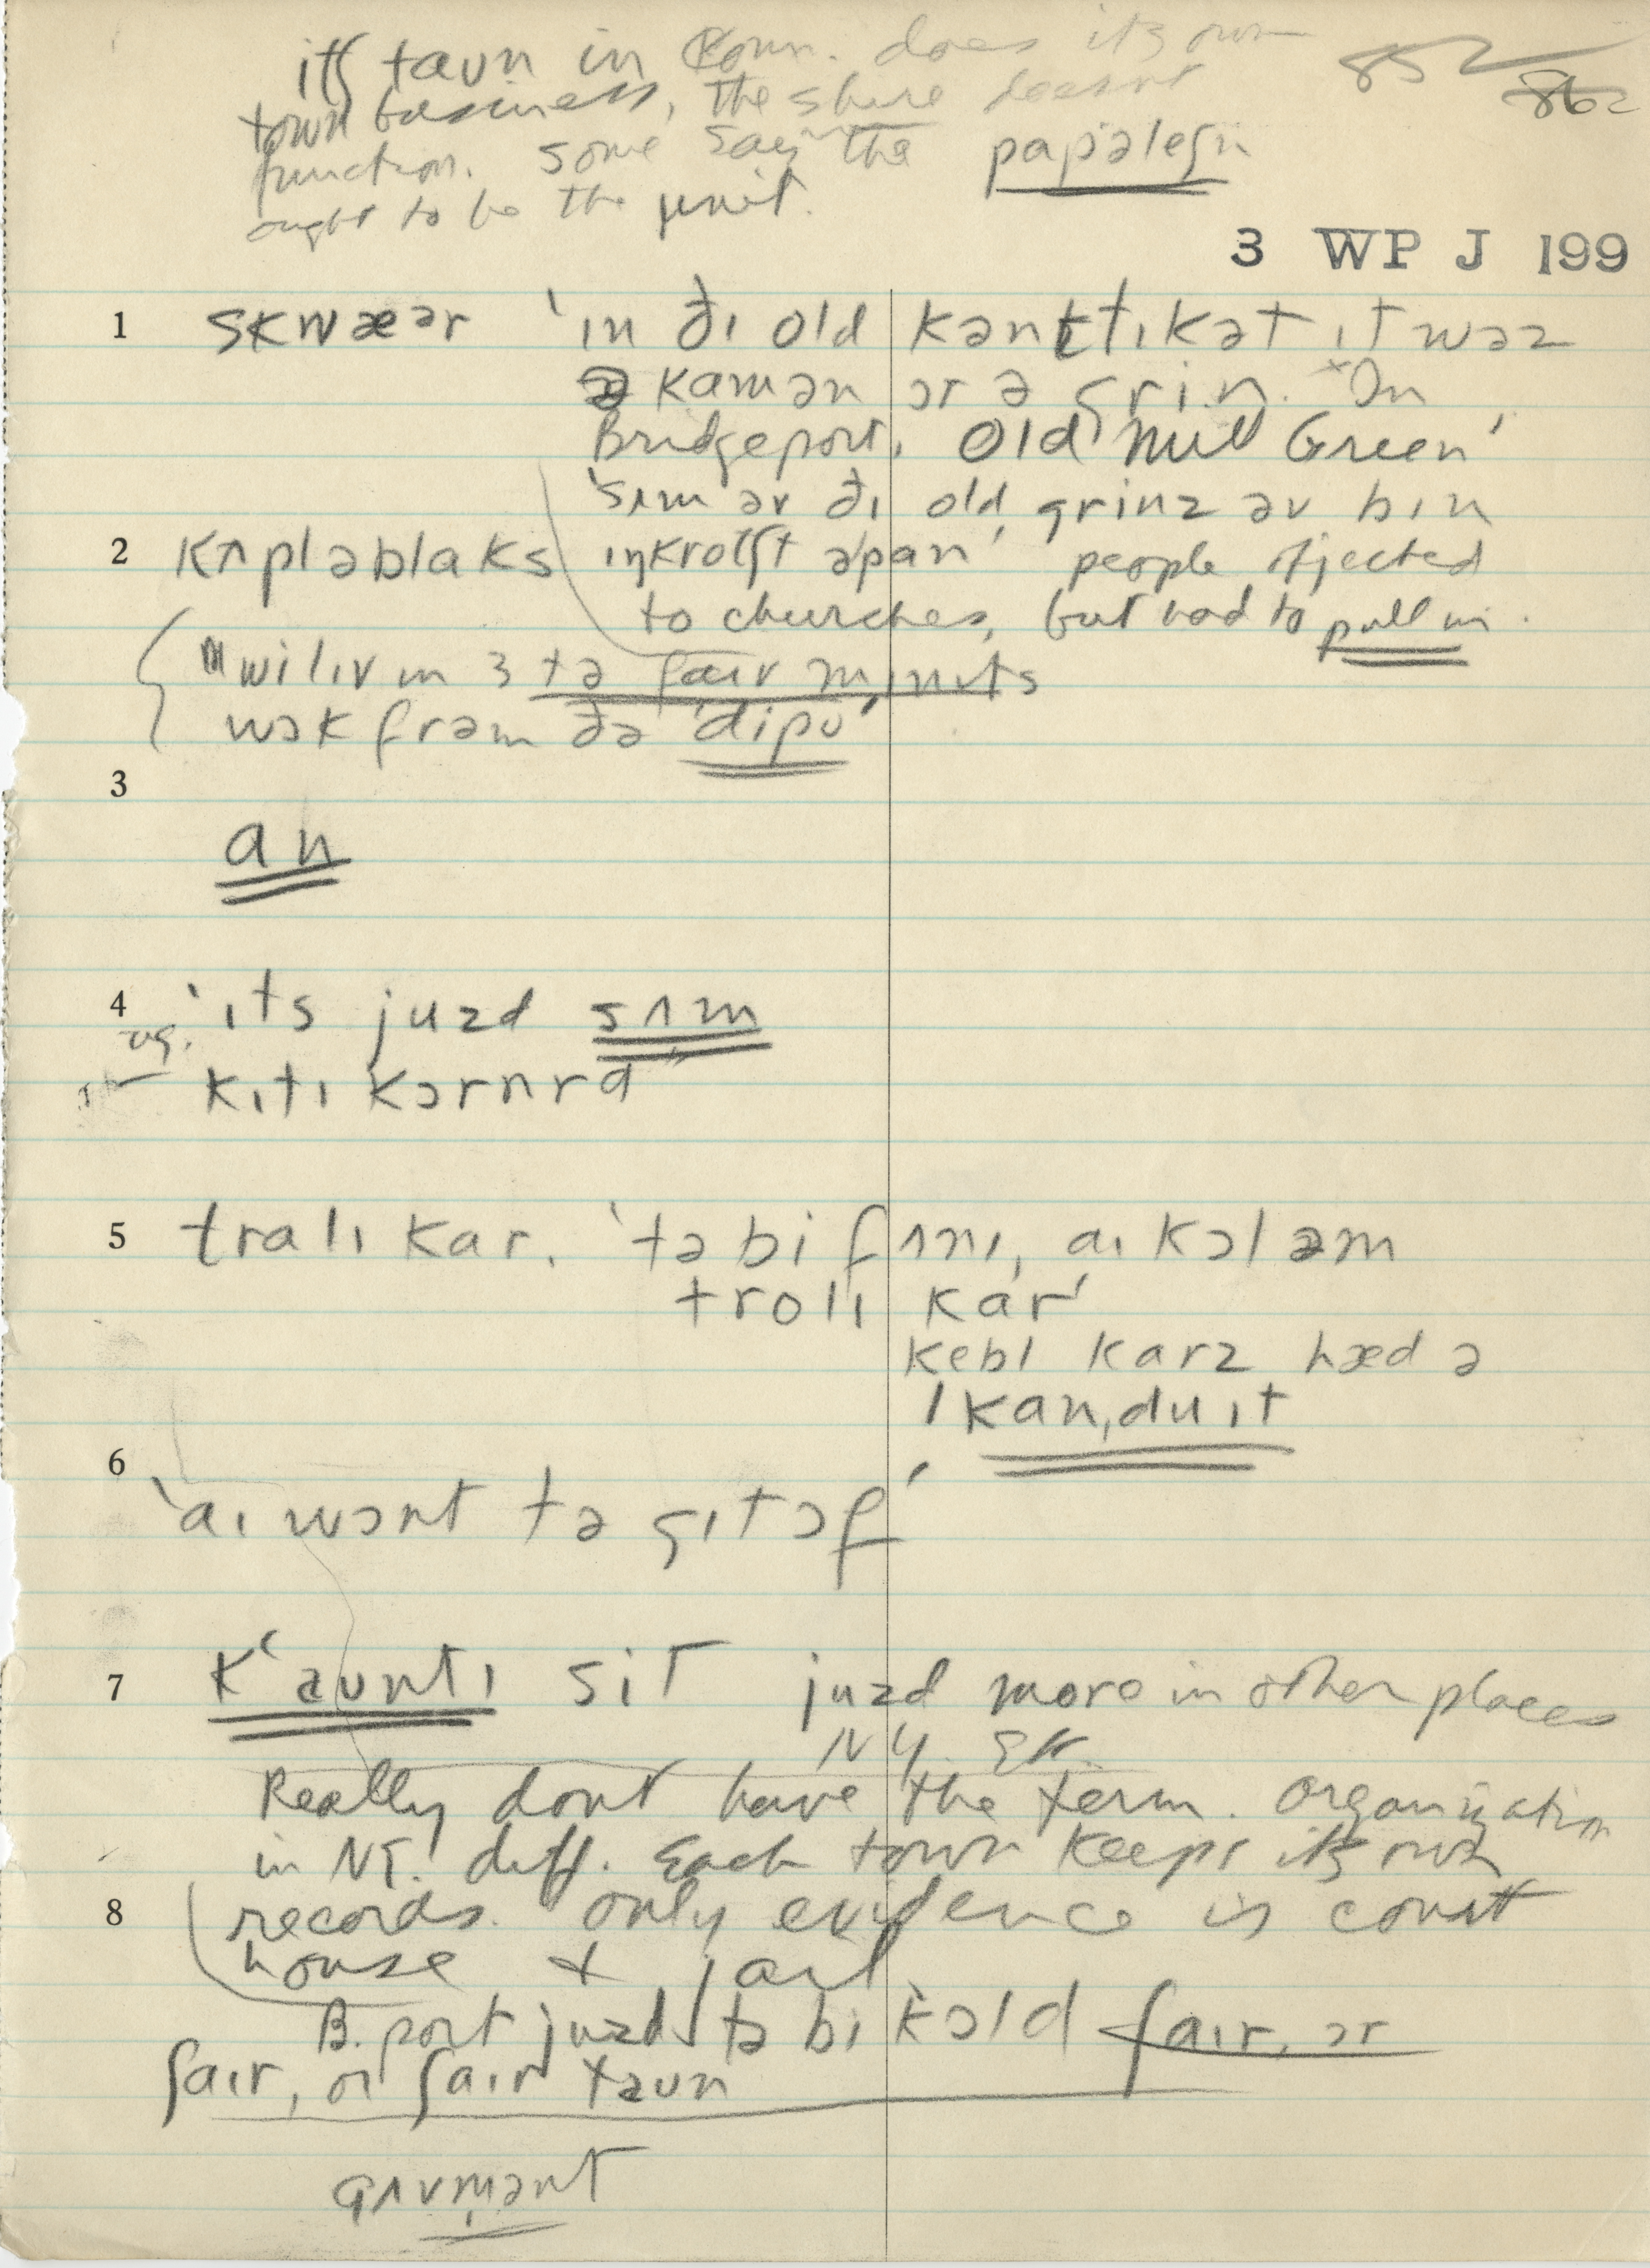 itʃ taun in Conn. does its own
852
town business, the shire doesnt
862
function. some say the papjəleʃn
ought to be the unit.
3 WP J 199
1 skwæər ‘ɪn ðɪ old kənɛtɪkət ɪt wəz
ə kamən ɔr ə grin. In
Bridgeport, Old Mill Green’
‘sʌm əv ðɪ old grinz əv bɪn
2 kʌpləblaks ɪŋkrotʃt əpan’ people objected
to churches, but had to pull in.
"wi lɪv ɪn 3 tə faɪv mɪnɪts
wɔk frəm ðə ‘dipo’
3
an
4 ‘ɪts juzd sʌm
kɪtɪ kɔrnrd"
5 tralɪ kar. ‘tə bi fʌnɪ, aɪ kɔl əm
trolɪ kar’
kebl karz hæd ə
ˈkanˌduɪt
6
‘aɪ wɔnt tə gɪt ɔf’
7 k‘auntɪ sit juzd more in other places
NY. etc.
Really dont have the term. Organization
in NE. diff. Each town keeps its own
8 records. only evidence is court
house + jail
B.port juzd tə bi kɔld ʃaɪr, ɔr
ʃaɪr, or ʃaɪr taun
gʌvmənt